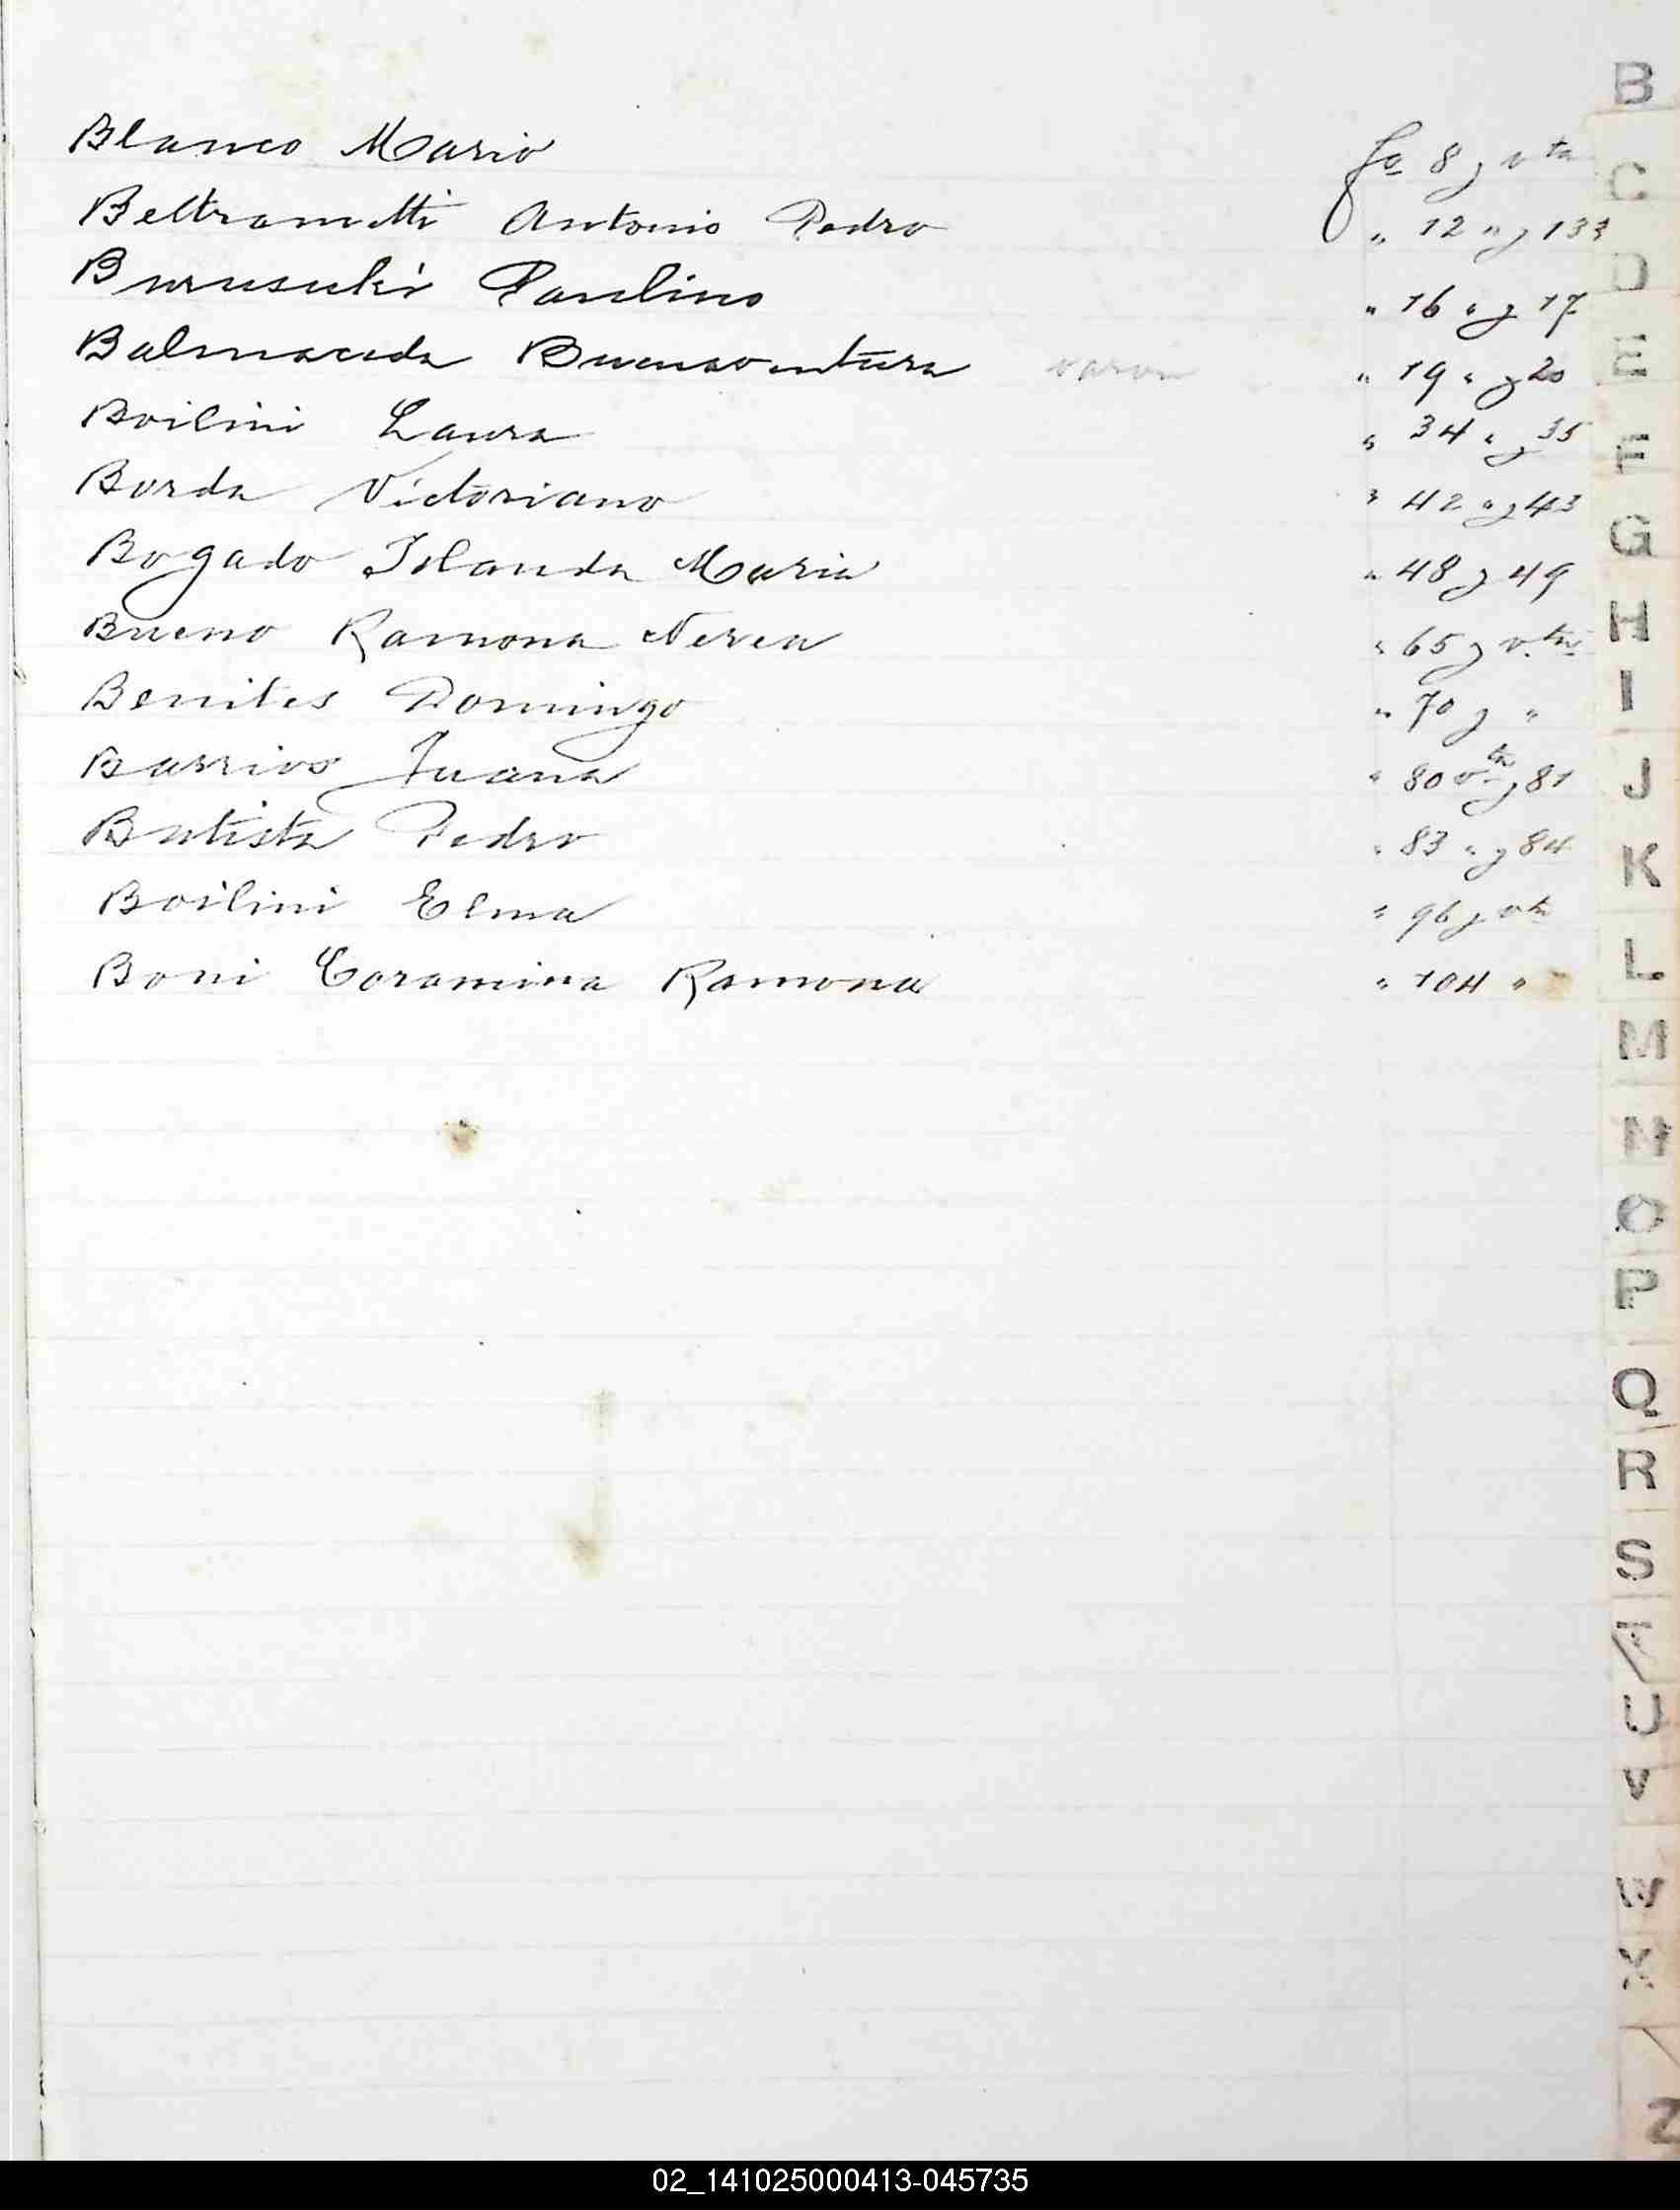 B
Blanco Mario fo 8 y vta
Beltrametti Antonio Pedro " 12 " y 13
Paulino " 16 " y 17
Balmaceda Buenaventura varon " 19 " y 20
Boilini Laura " 34 " y 35
Borda Victoriano " 42 " y 43
Bogado Iolanda Maria " 48 y 49
Bueno Ramona Nerea " 65 y vta
Benites Domingo " 70 y "
Barrios Juana " 80 vta y 81
Batista Pedro " 83 " y 84
Boilini Elma " 96 y vta
Boni Coramina Ramona " 104 "
C
D
E
F
G
H
I
J
K
L
M
N
O
P
Q
R
S
T
U
V
W
X
Z
02_141025000413-045735